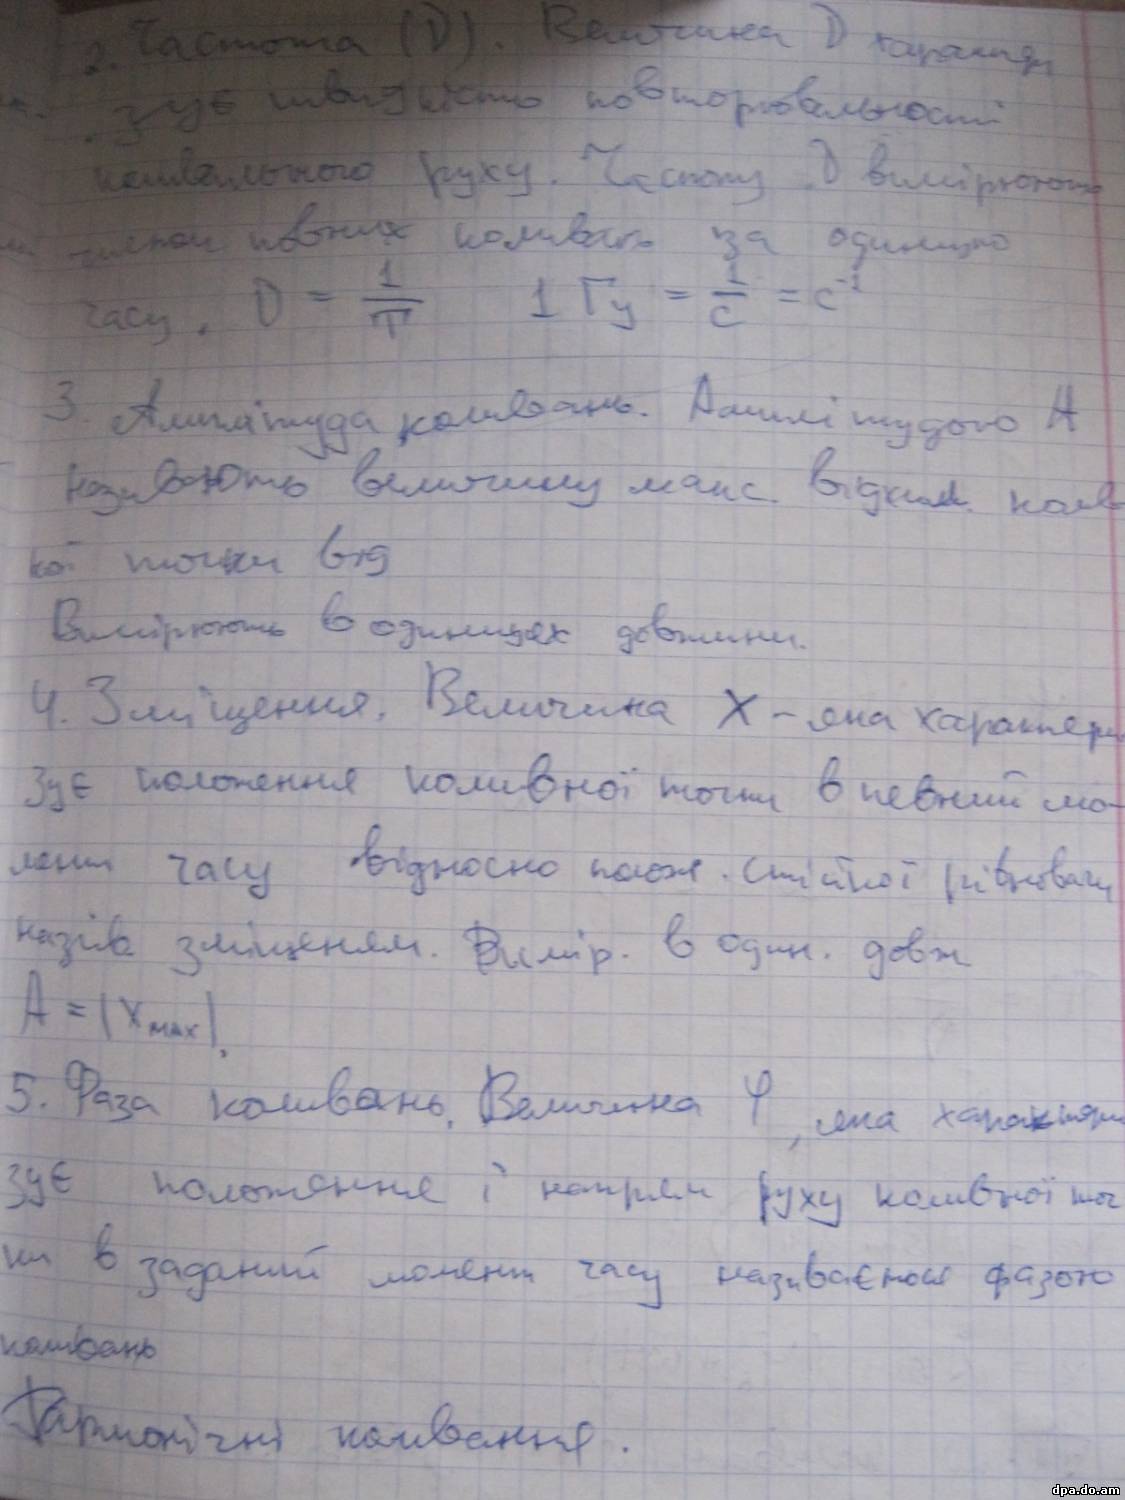 2. Частота (D). Величина D характери
зує швидкість повторювальності
коливального руху. Частоту D вимірюють
числом повних коливань за одиницю
часу. D = 1/T 1 Гц = 1/с = с⁻¹
3. Амплітуда коливань. Амплітудою А
називають величину макс. відхил. колив
ної точки від
Вимірюють в одиницях довжини.
4. Зміщення. Величина X - яка характери
зує положення коливної точки в певний мо-
мент часу відносно полож. стійкої рівноваги
назив зміщенням. Вимір. в один. довж
A = |Xмах|.
5. Фаза коливань. Величина φ, яка характери
зує положення і напрям руху коливної точ
ки в заданий момент часу називається фазою
коливань
Гармонічні коливання.
dpa.do.am